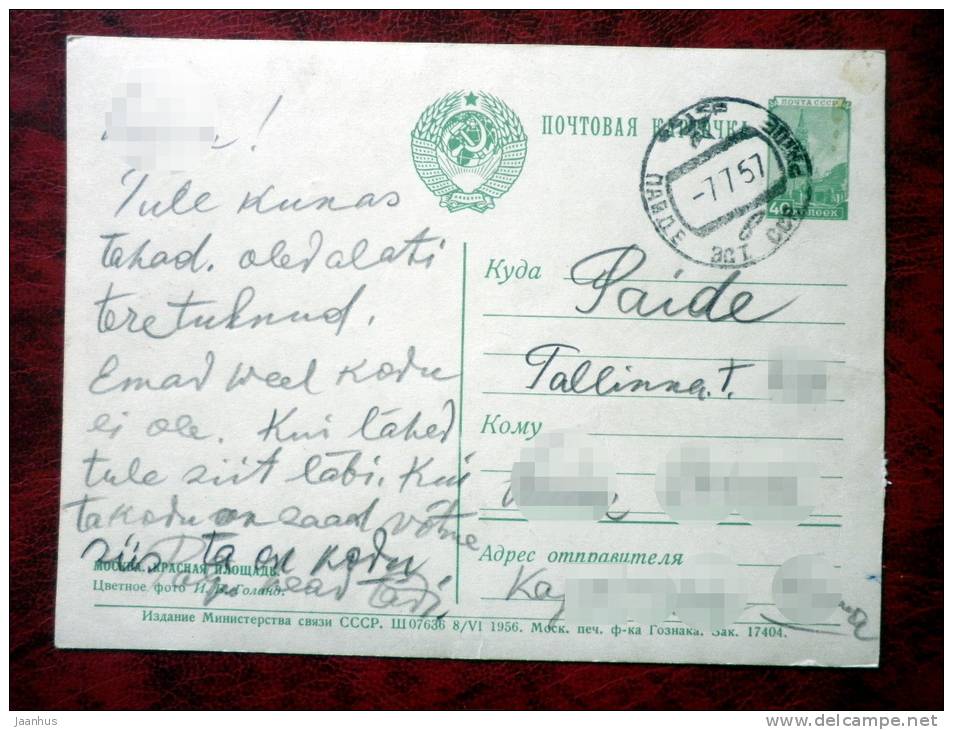 !
Tule kunas
tahad. oled alati
teretulnud.
Emad weel kodu
ei ole. Kui lähed
tule siit läbi. Kui
ta kodu on saad võtme
siis ta on kodu.
head
ПОЧТОВАЯ КАРТОЧКА
ПОЧТА СССР
40 КОПЕЕК
ПАЙДЕ ЭСТ ССР
-7 7 57
Куда
Paide
Tallinna t.
Кому
Адрес отправителя
МОСКВА. КРАСНАЯ ПЛОЩАДЬ.
Цветное фото И. В. Голанд.
Издание Министерства связи СССР. Ш07636 8/VI 1956. Моск. печ. ф-ка Гознака. Зак. 17404.
Jaanhus
www.delcampe.net